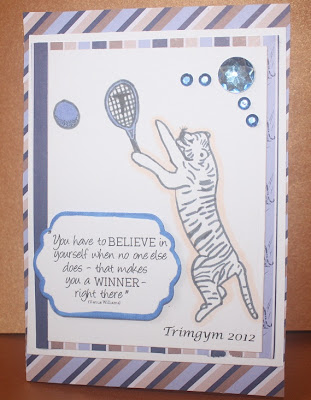 You have to BELIEVE in
yourself when no one else
does - that makes
you a WINNER -
right there"
(Venus Williams)
Trimgym 2012